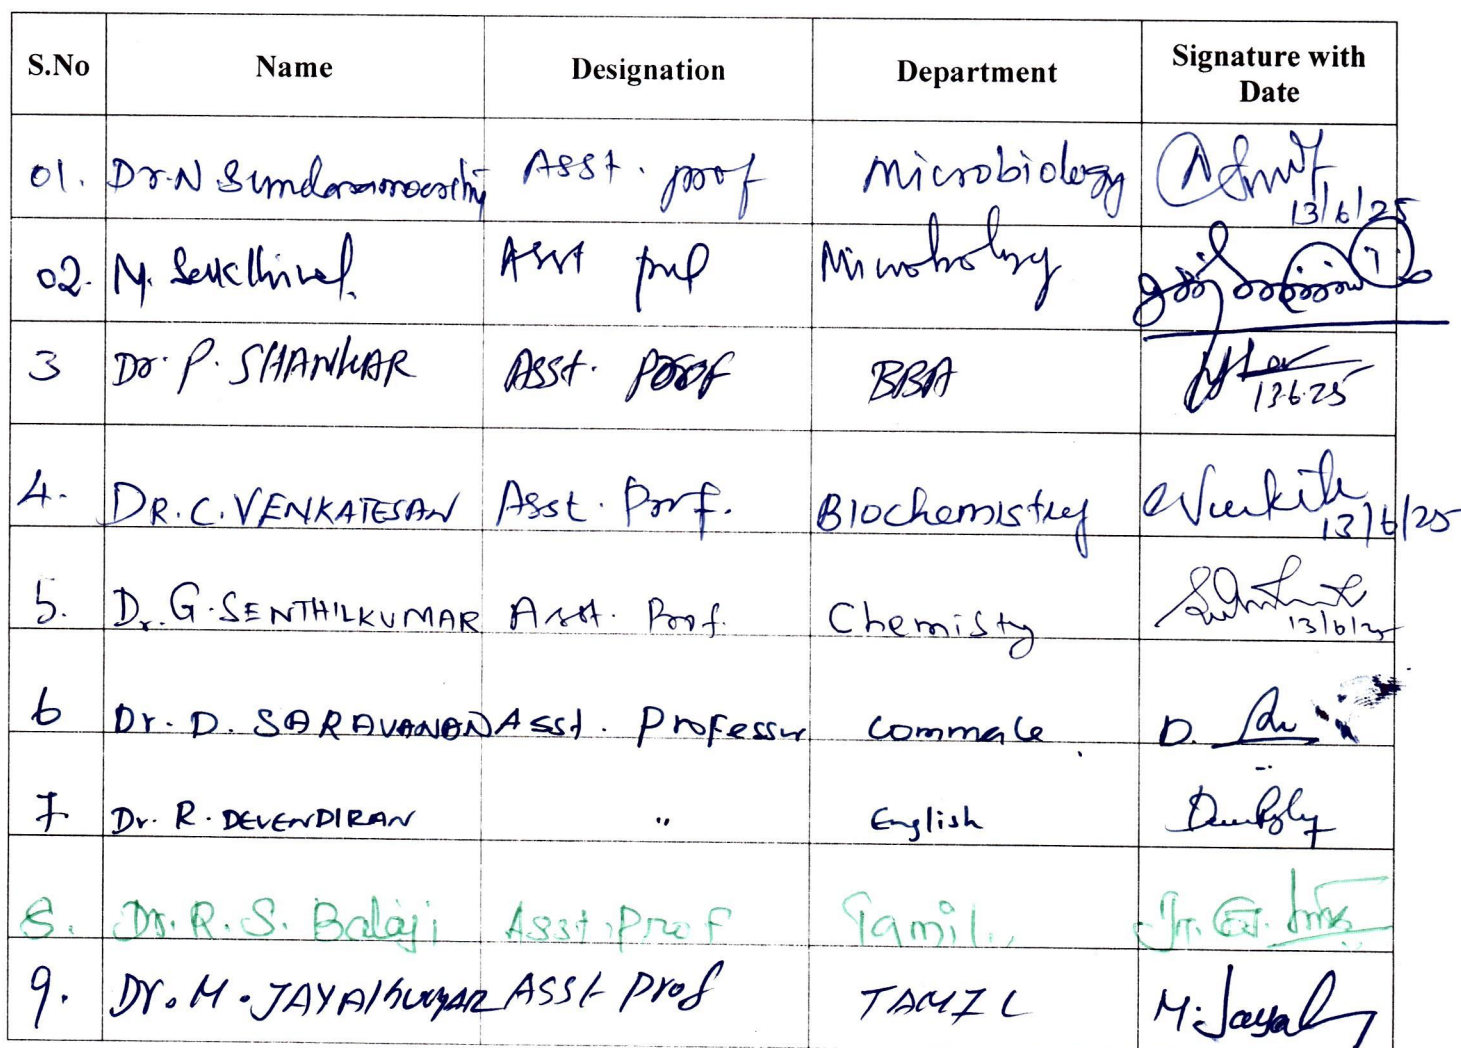 S.No Name Designation Department Signature with Date
01. Dr.N Sundaramoorthy Asst. prof Microbiology 13/6/25
02. M. Sakthivel. Asst prof Microbology
3 Dr. P. SHANKAR Asst. Prof BBA 13.6.25
4. DR. C. VENKATESAN Asst. Prof. Biochemistry 13/6/25
5. Dr. G. SENTHILKUMAR Asst. Prof. Chemisty 13/6/25
6 Dr. D. SARAVANAN Asst. Professor Commerce D.
7. Dr. R. DEVENDIRAN " English
8. Dr. R. S. Balaji Asst. Prof Tamil.
9. Dr. M. JAYAKUMAR ASSt Prof TAMIL M. Jaya